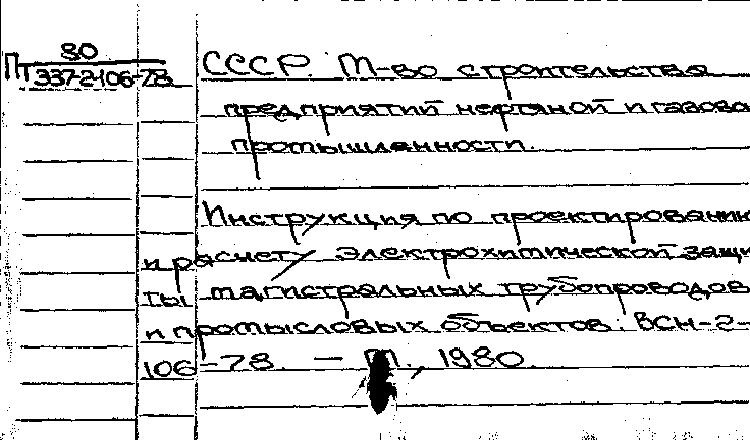 П 80
Т 337-2-106-78
СССР. М-во строительства
предприятий нефтяной и газово
промышленности.
Инструкция по проектированию
и расчету электрохимической защи
ты магистральных трубопроводов
и промысловых объектов: ВСН-2-
106-78. — М., 1980.